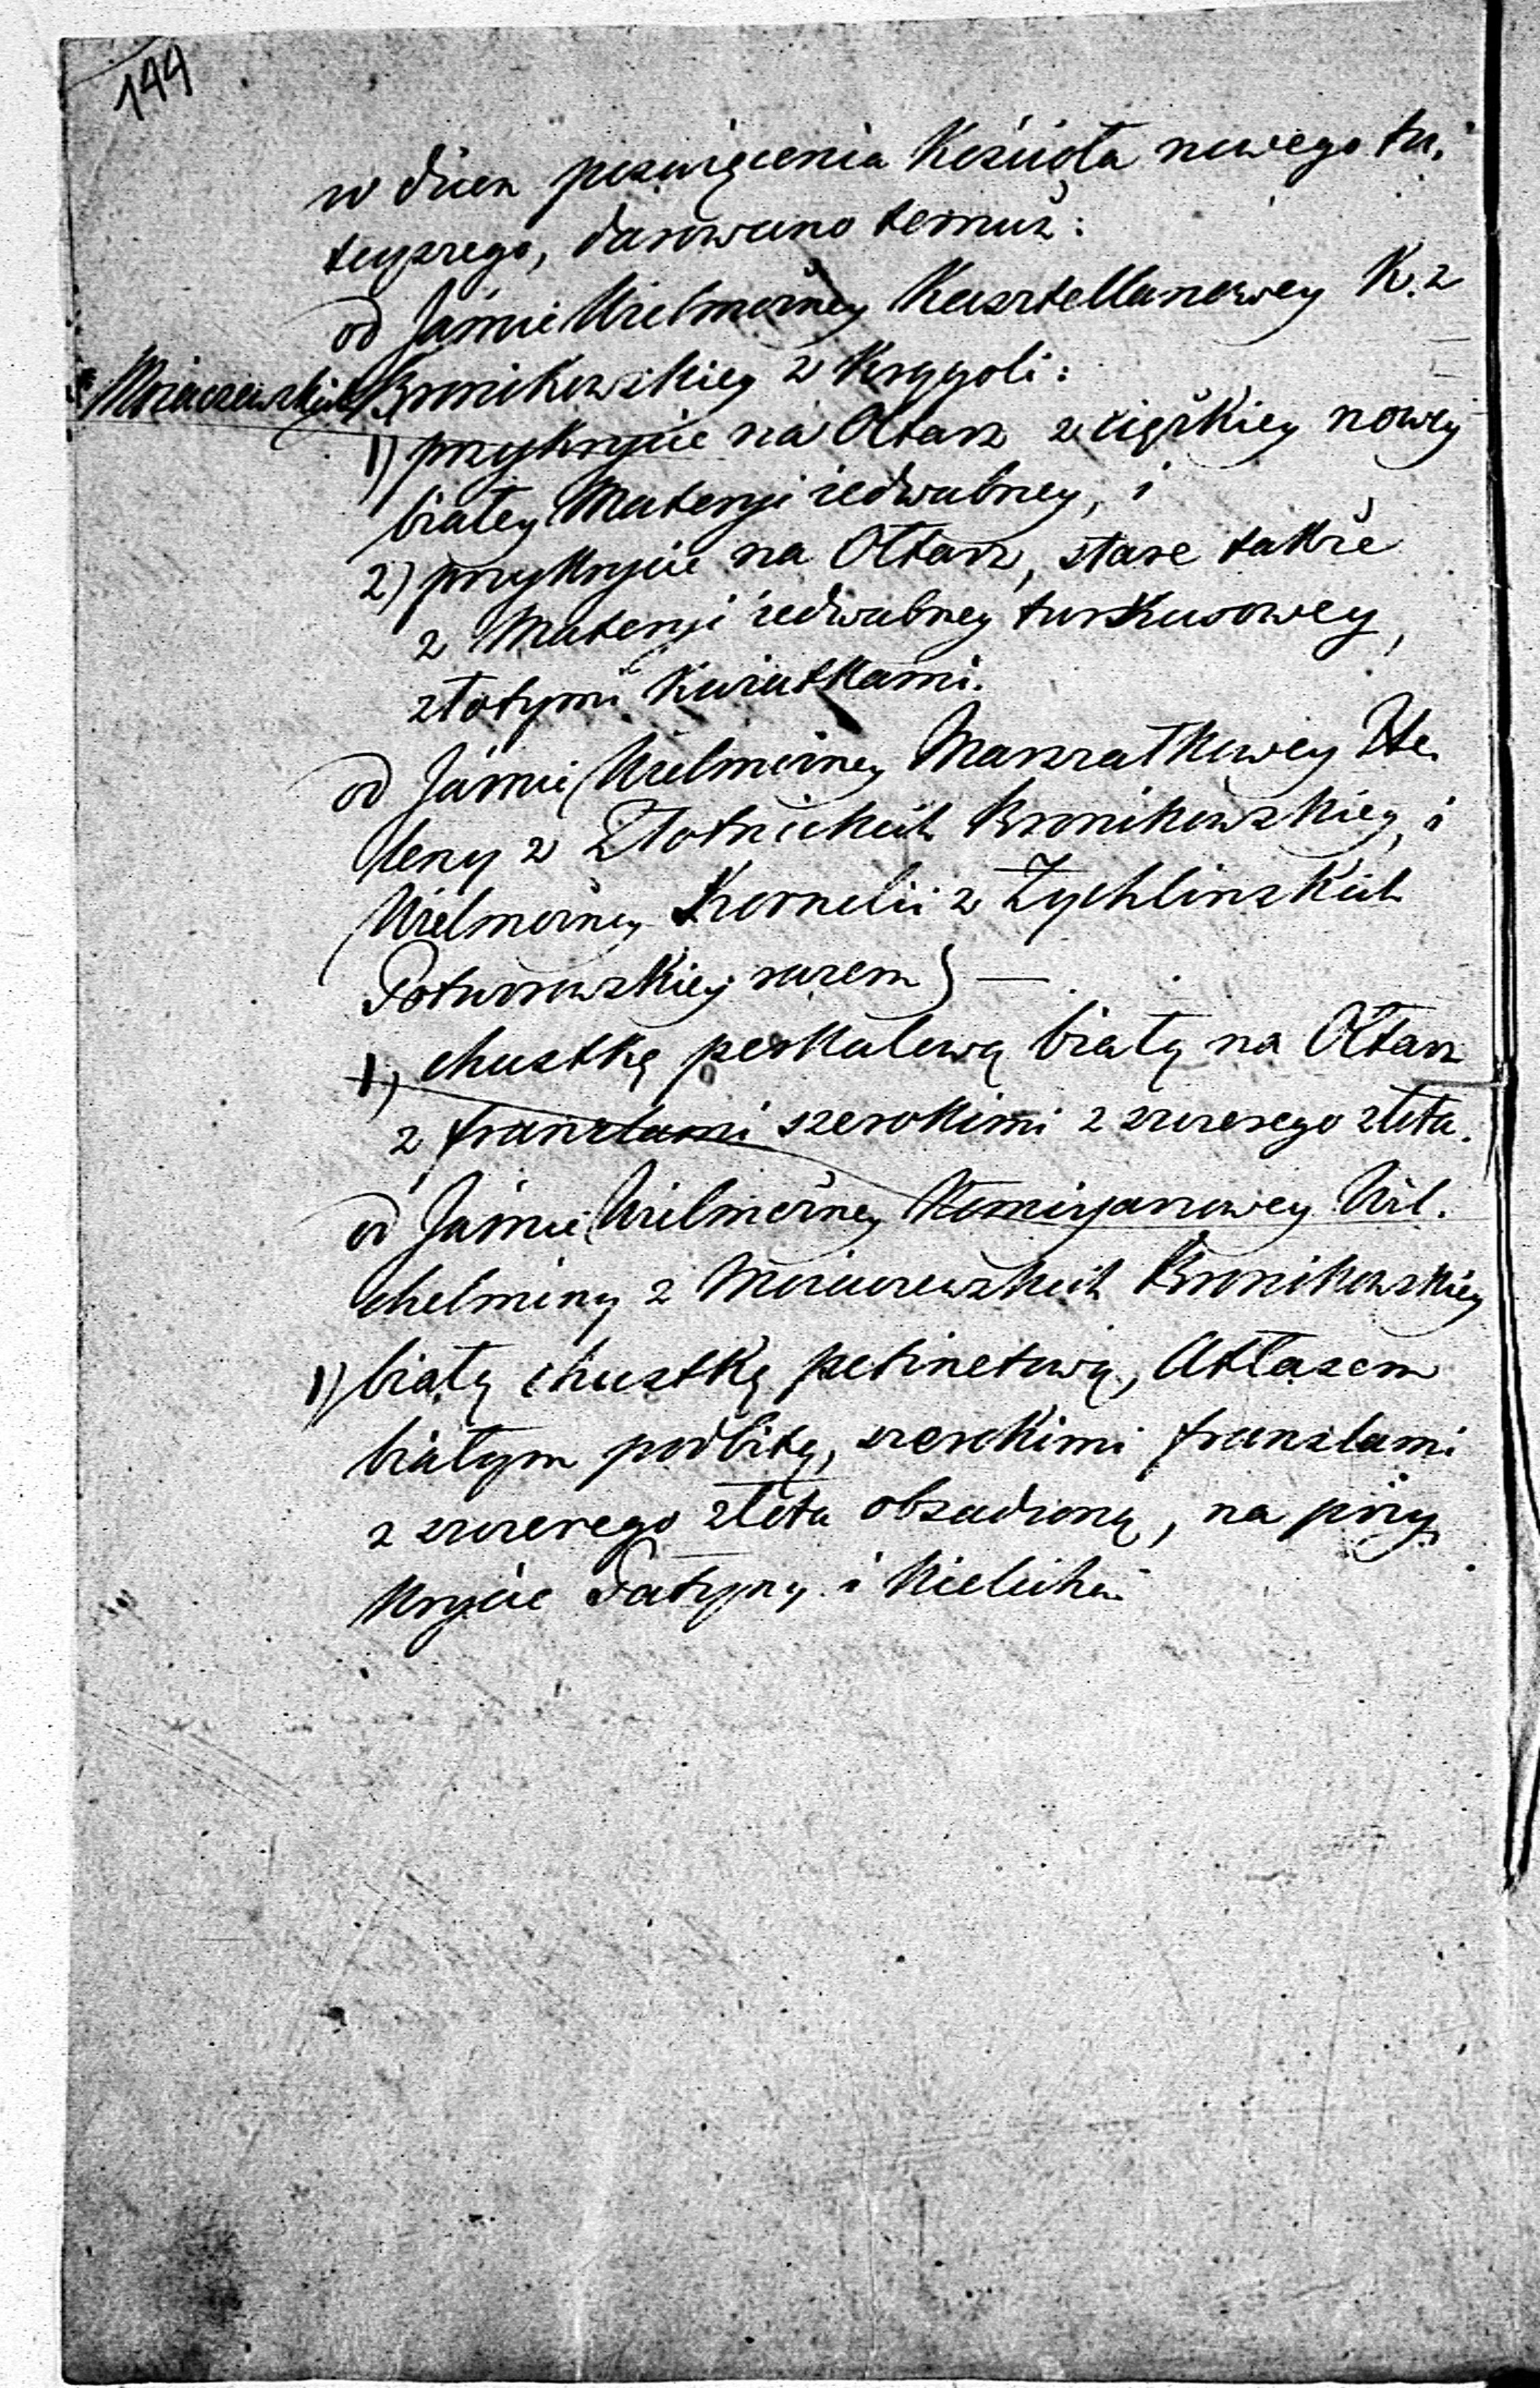 144
w dzien poswięcenia Kościoła nowego tu,
teyszego, darowano temuż:
od Jaśnie Wielmożney Kasztellanowey K. z
* Moraczewskich Bronikowskiey z Krzyżoli:
1) przykrycie na Ołtarz z ciężkiey nowey
białey Materyi iedwabney, i
2) przykrycie na Ołtarz, stare także
z Materyi iedwabney turkusowey,
złotymi Kwiatkami.
od Jaśnie Wielmożney Marszałkowey He,
leny z Złotnickich Bronikowskiey, i
Wielmożney Kornelii z Żychlinskich
Potworowskiey razem) —
1) chustkę perkalową białą na Ołtarz
z franzlami szerokimi z szczerego złota.
od Jaśnie Wielmożney Wil.
helminy z Moraczewskich Bronikowskiey
1) białą chustkę petinetową, Atłasem
białym podbitą, szerokimi franzlami
z szczerego złota obsadzoną, na przy,
krycie Patyny i Kielicha